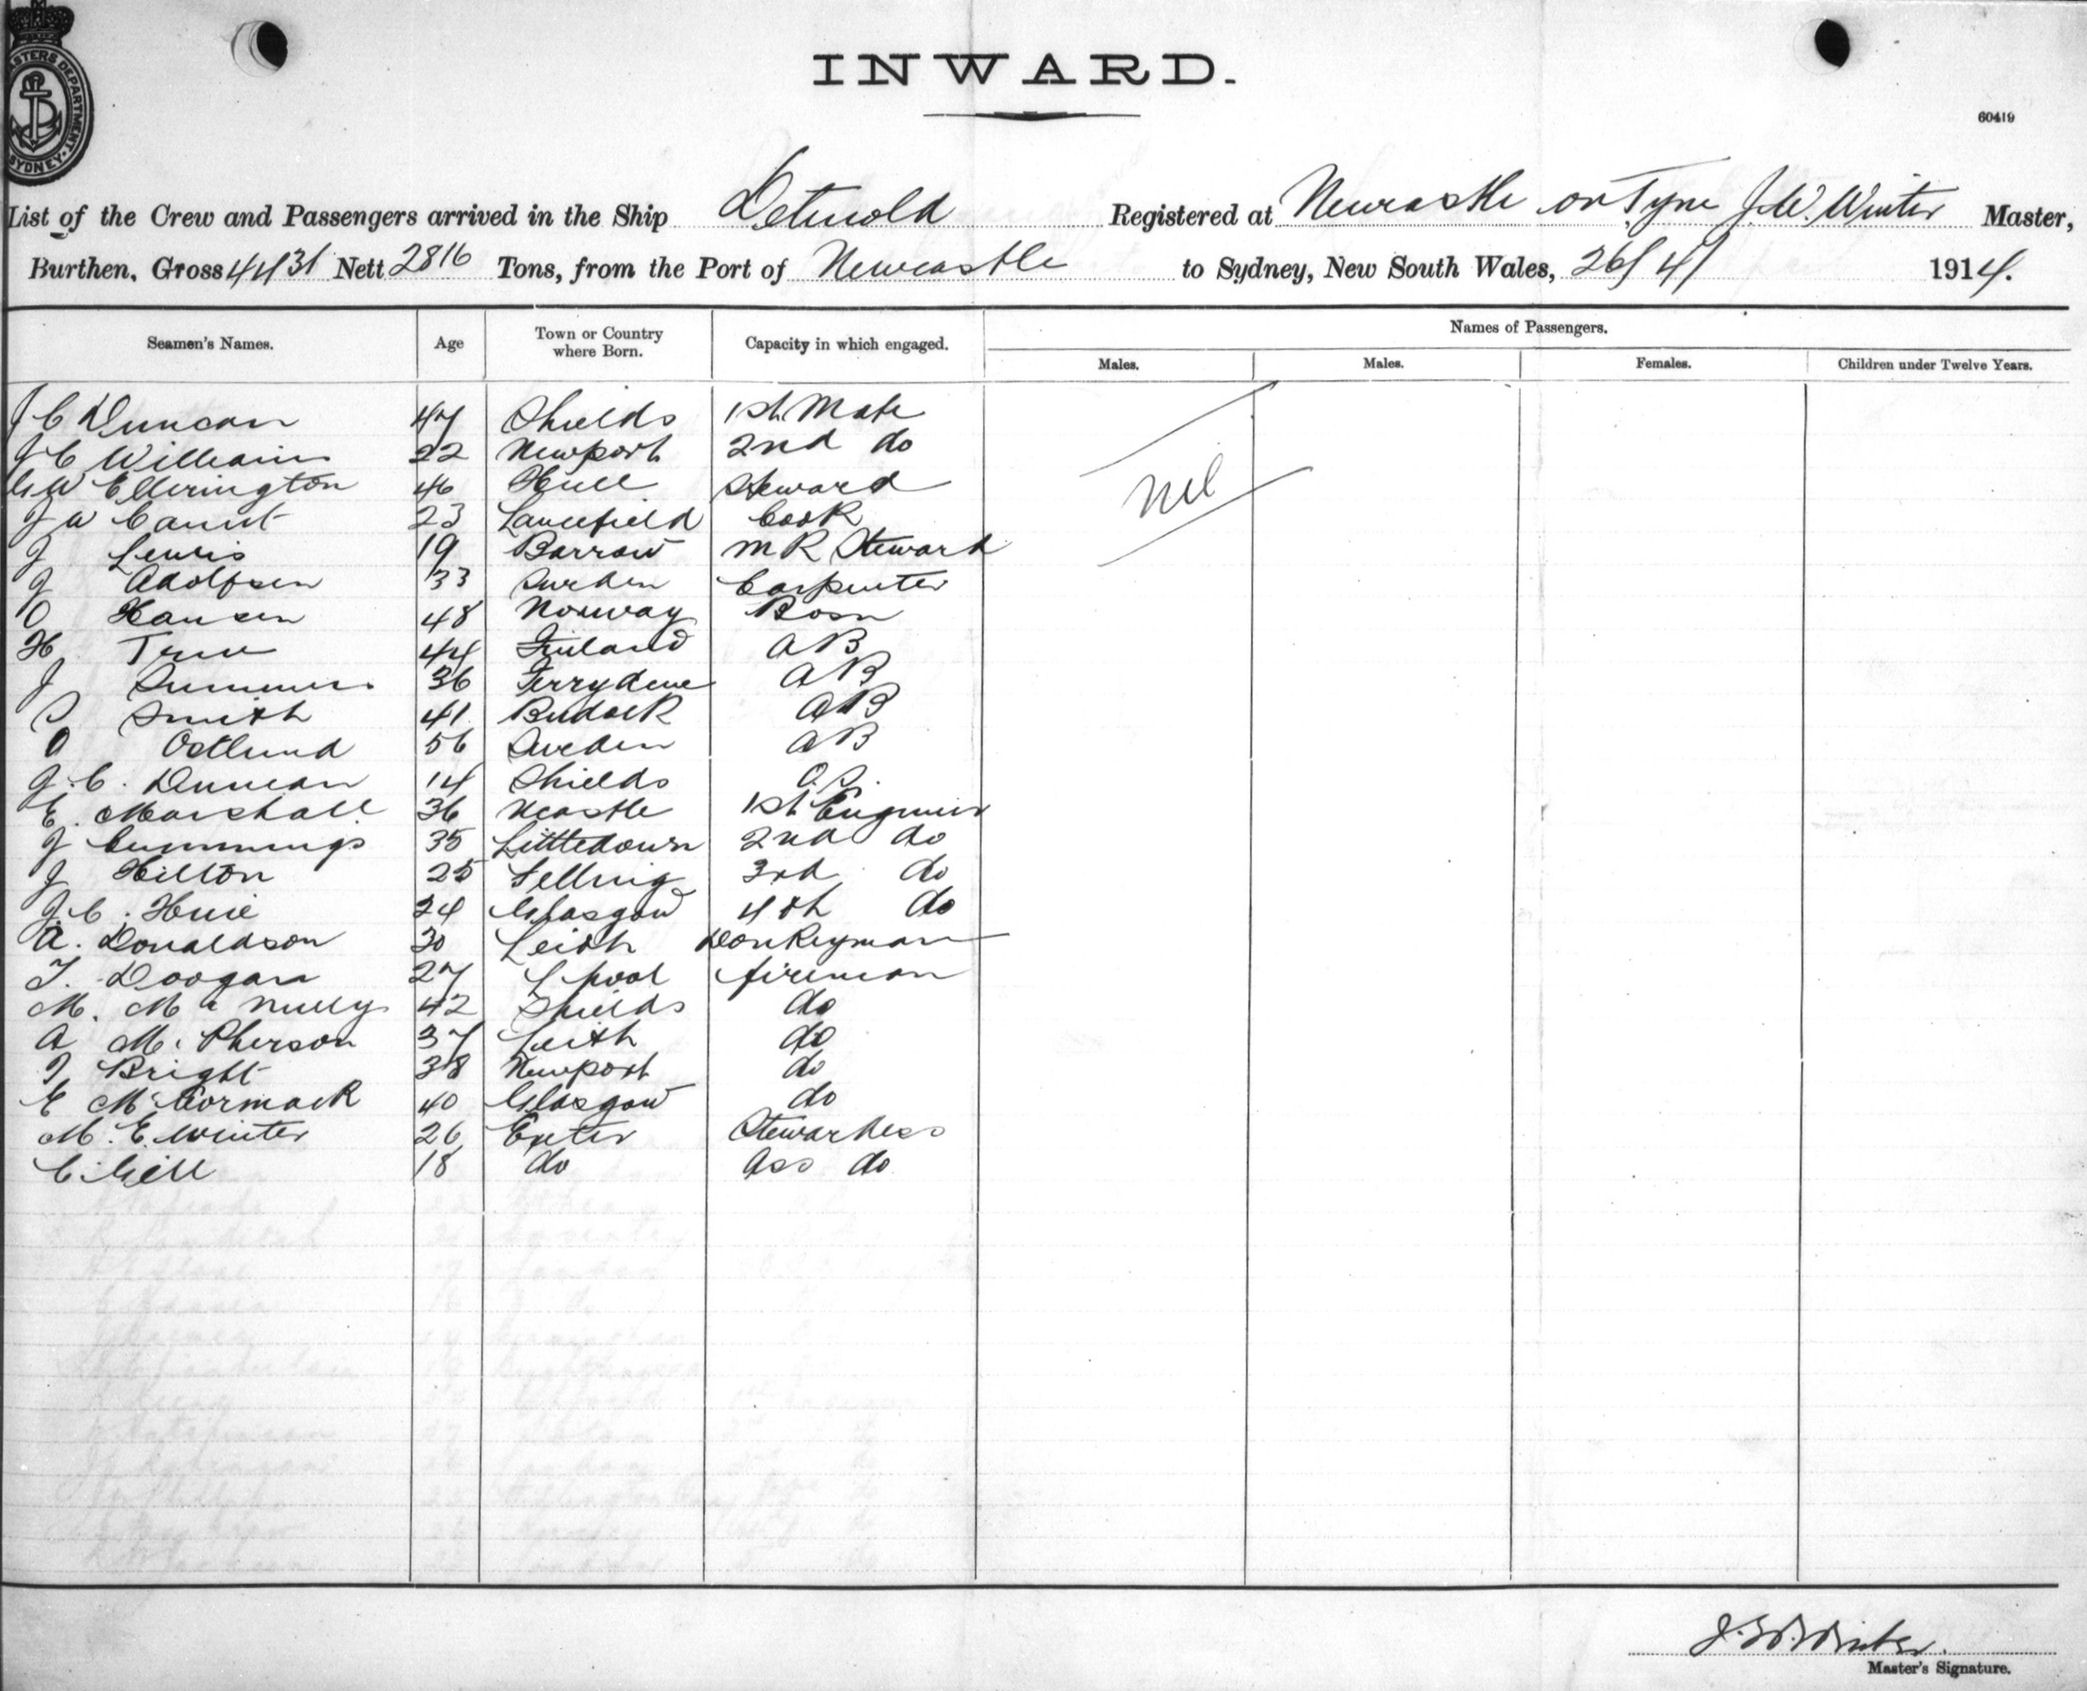 MASTERS DEPARTMENT
SYDNEY
INWARD.
60419
List of the Crew and Passengers arrived in the Ship Detmold Registered at Newcastle on Tyne J.W. Winter Master,
Burthen, Gross 4431 Nett 2816 Tons, from the Port of Newcastle to Sydney, New South Wales, 26/4/ 1914.
Seamen's Names. Age Town or Country where Born. Capacity in which engaged. Names of Passengers.
Males. Males. Females. Children under Twelve Years.
Nil
J C Duncan 47 Shields 1st Mate
J C Williams 22 Newport 2nd do
G W Ellerington 46 Hull Steward
J W 23 Lancefield Cook
J Lewis 19 Barrow M R Steward
J Adolfsen 33 Sweden Carpenter
O Hansen 48 Norway Bosn
H 44 Finland AB
J Summers 36 Ferrydene AB
S Smith 41 Budock AB
O Ostlund 56 Sweden AB
J. C. Duncan 14 Shields O.S.
E. Marshall 36 Ncastle 1st Engineer
J Cummings 35 Littletown 2nd do
J Hilton 25 Felling 3rd do
J. C. Huie 24 Glasgow 4th do
A. Donaldson 30 Leith Donkeyman
T. Doogan 27 L'pool fireman
M. Mc Nully 42 Shields do
A Mc Pherson 37 Leith do
J Bright 38 Newport do
E McCormack 40 Glasgow do
M. E. Winter 26 Exeter Stewardess
C. Gill 18 do Ass do
J. W. Winter.
Master's Signature.